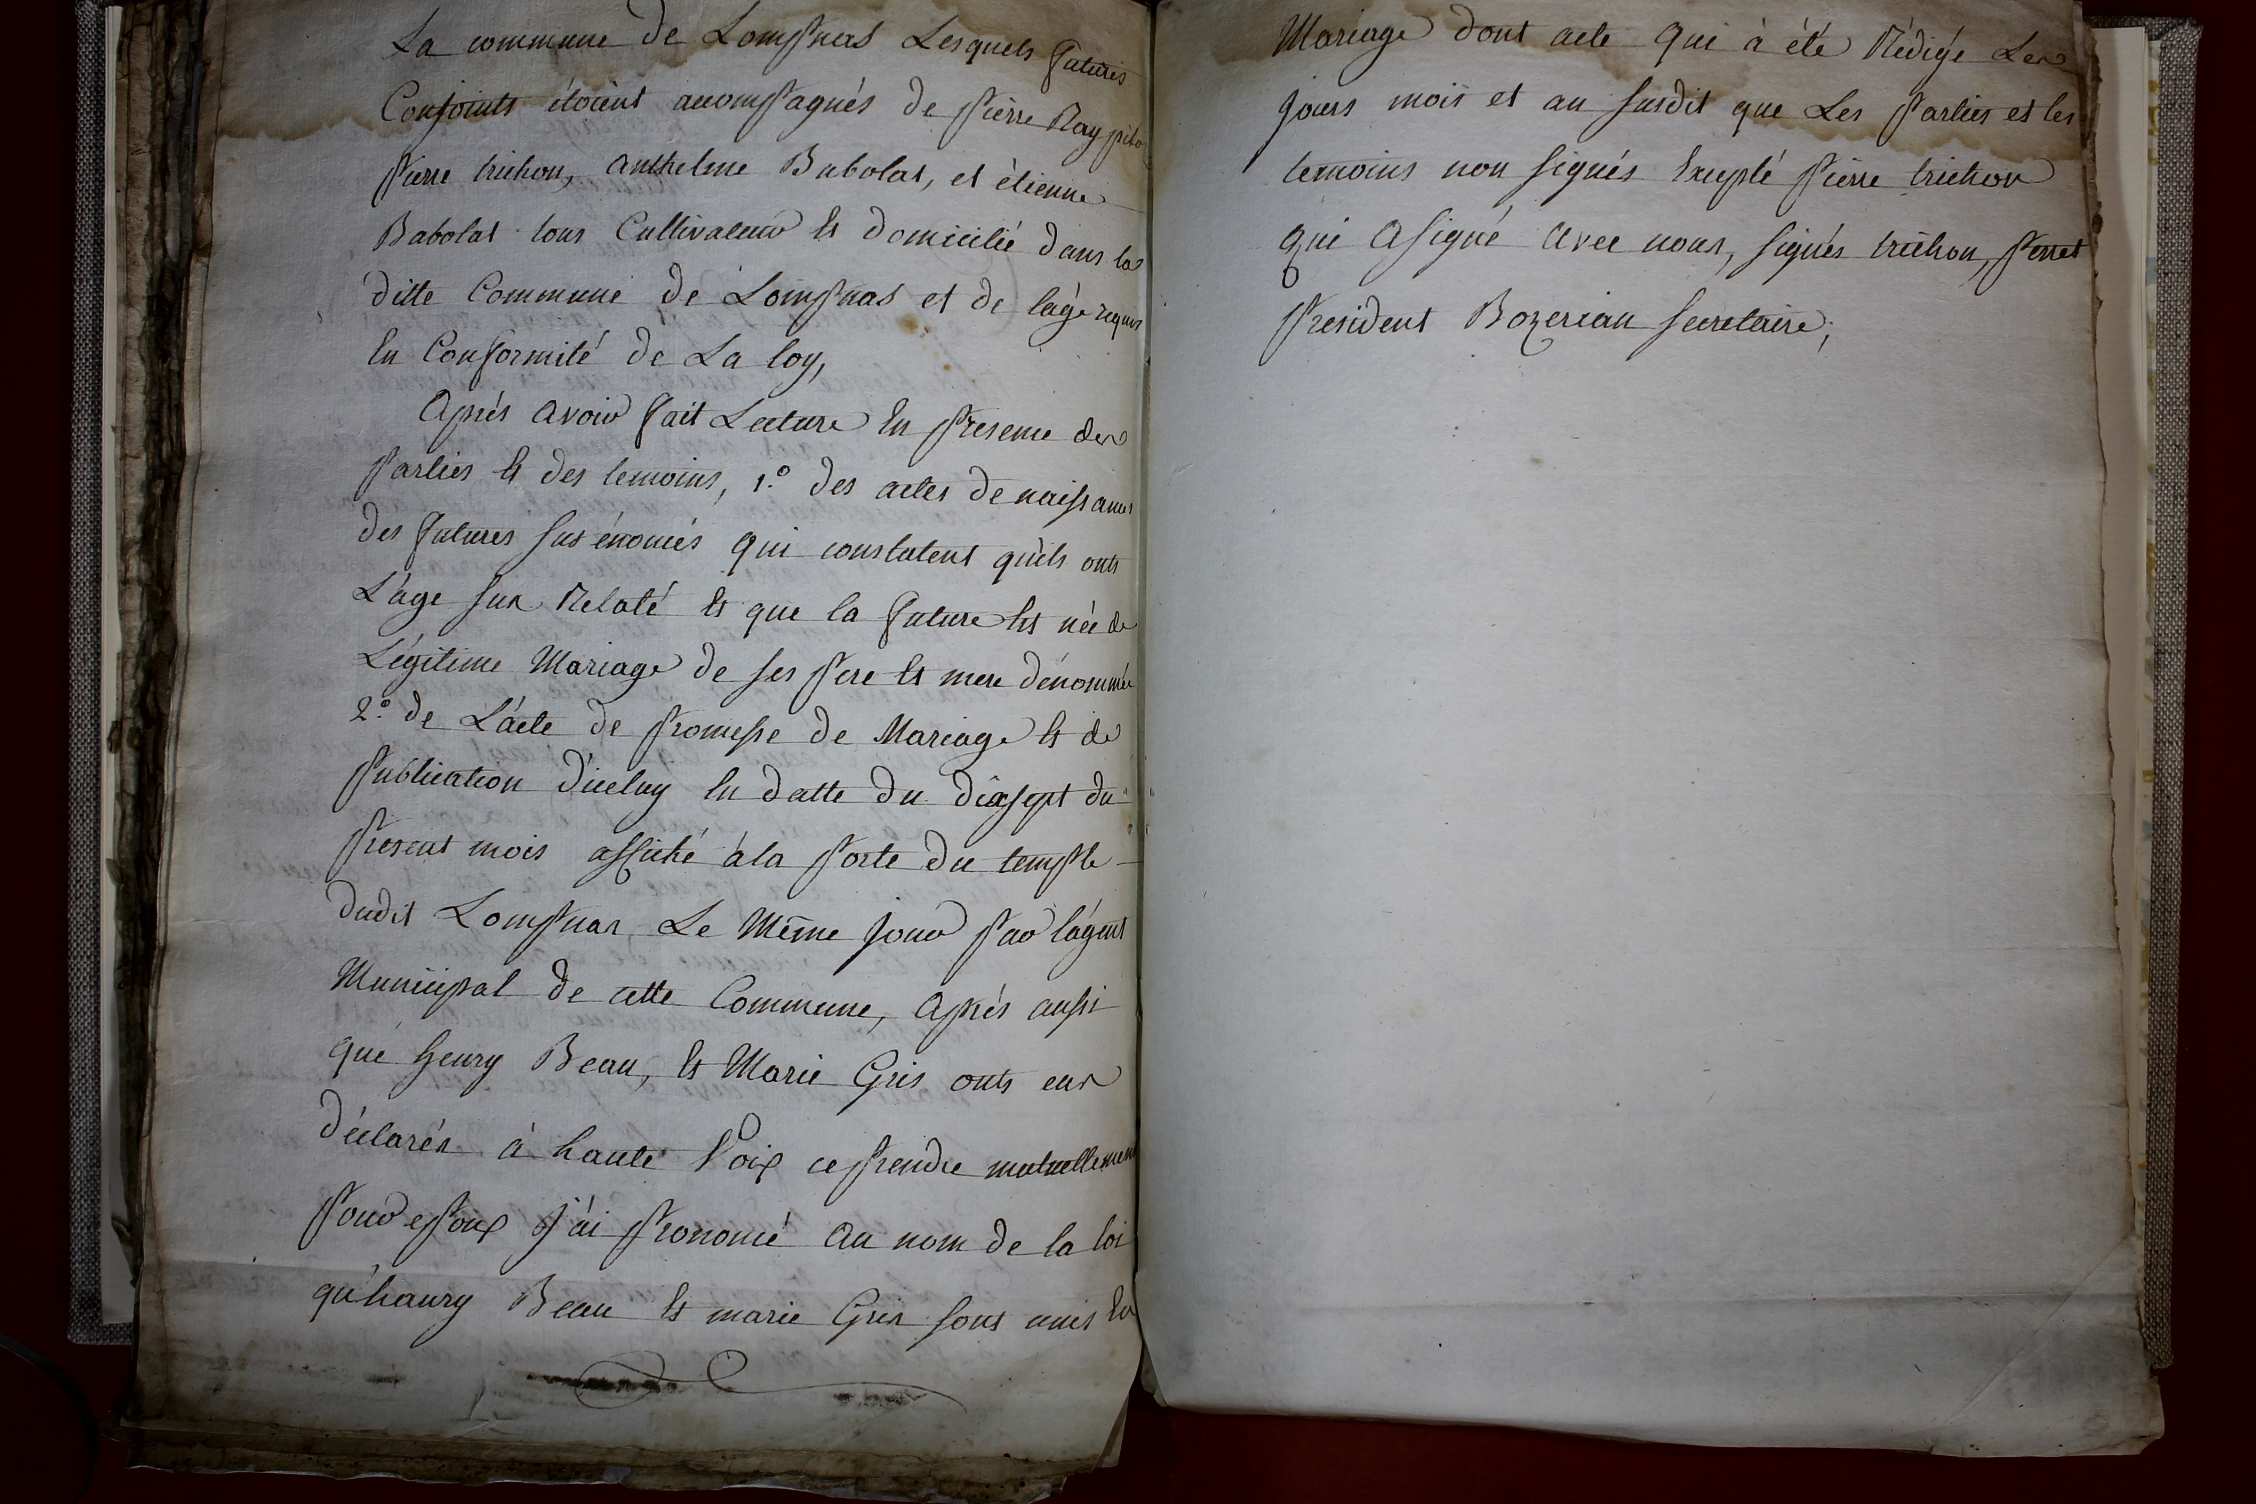 La commune de Lompnas Lesquels futurs
Conjoints étoient accompagnés de Pierre Ray
Pierre trichon, anthelme Babolat, et étienne
Babolat tous Cultivateur Et domicilié dans la
ditte Commune de Lompnas et de lage requis
En Conformité de La loy,
Aprés avoir fait Lecture En Presence des
Parties Et des temoins, 1.° des actes de naissances
des futures sus énomés qui constatent quils onts
L'age sus Relaté Et que la future Est née de
Légitime Mariage de ses Pere Et mere dénommée
2.° de L'acte de Promesse de Mariage Et de
Publication d'iceluy En datte du dixsept du
Present mois affiché à la Porte du temple
dudit Lompnas Le Même jour Par l'agent
Municipal de cette Commune, aprés aussi
que henry Beau, Et Marie Gris onts eus
déclarés à haute Voix ce Prendre mutuellement
Pour epoux J'ai Prononcé au nom de la loi
qu'haury Beau Et marie Gris sont unis En
Mariage dont acte qui à été Rédigé Les
jours mois et an susdit que Les Parties et les
temoins non signés Excepté Pierre trichon
qui a signé avec nous, signés trichon, Perret
President Bozerian secretaire;